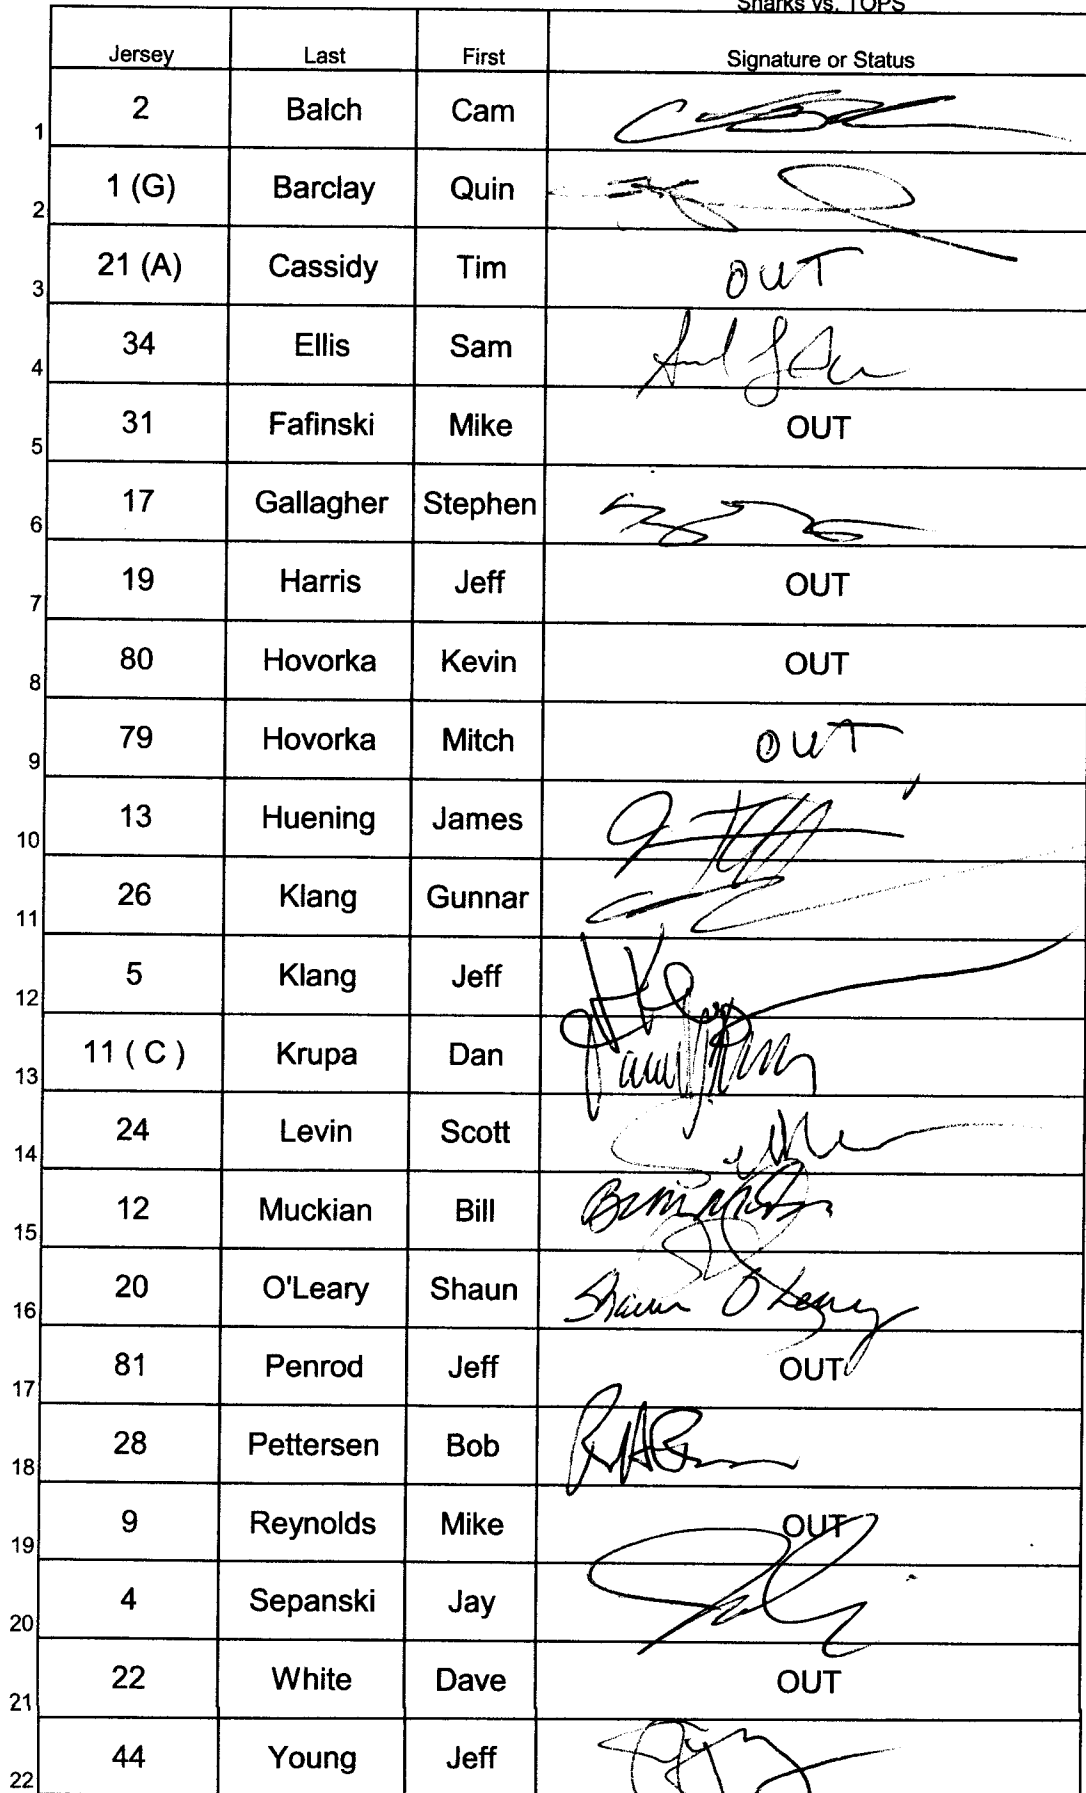 Sharks vs. TOPS
Jersey Last First Signature or Status
1 2 Balch Cam
2 1 (G) Barclay Quin
3 21 (A) Cassidy Tim OUT
4 34 Ellis Sam
5 31 Fafinski Mike OUT
6 17 Gallagher Stephen
7 19 Harris Jeff OUT
8 80 Hovorka Kevin OUT
9 79 Hovorka Mitch OUT
10 13 Huening James
11 26 Klang Gunnar
12 5 Klang Jeff
13 11 ( C ) Krupa Dan
14 24 Levin Scott
15 12 Muckian Bill
16 20 O'Leary Shaun Shaun O'Leary
17 81 Penrod Jeff OUT
18 28 Pettersen Bob
19 9 Reynolds Mike OUT
20 4 Sepanski Jay
21 22 White Dave OUT
22 44 Young Jeff